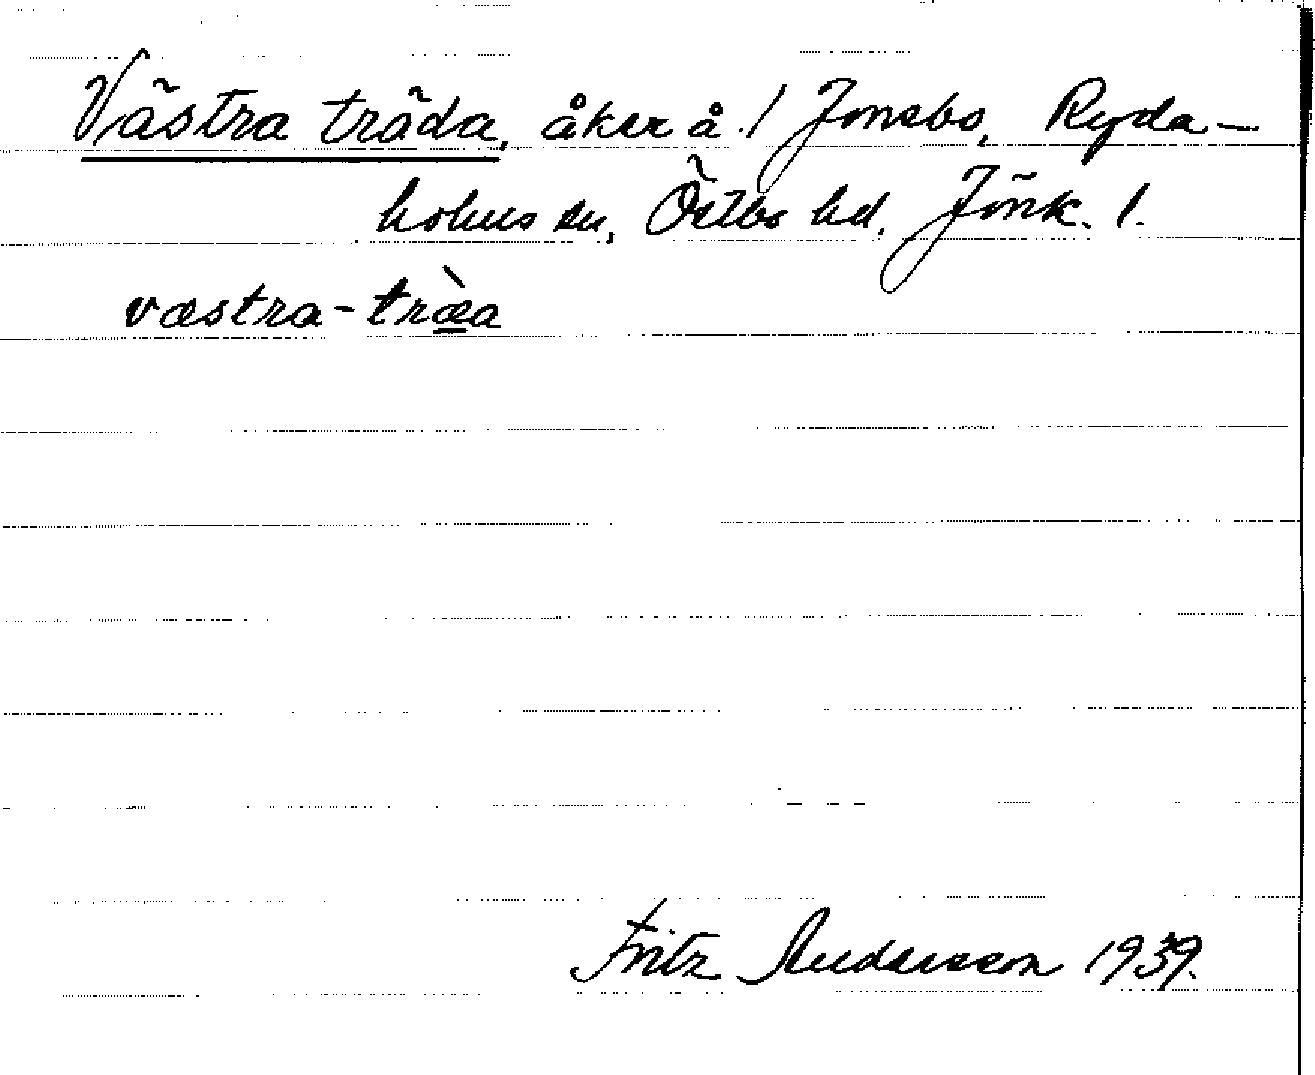 Västra träda, åker å /Jonsbo, Ryda-
holms sn, Östbo hd, Jönk. l.
væstra-træ̀a
Fritz Andersson 1939.